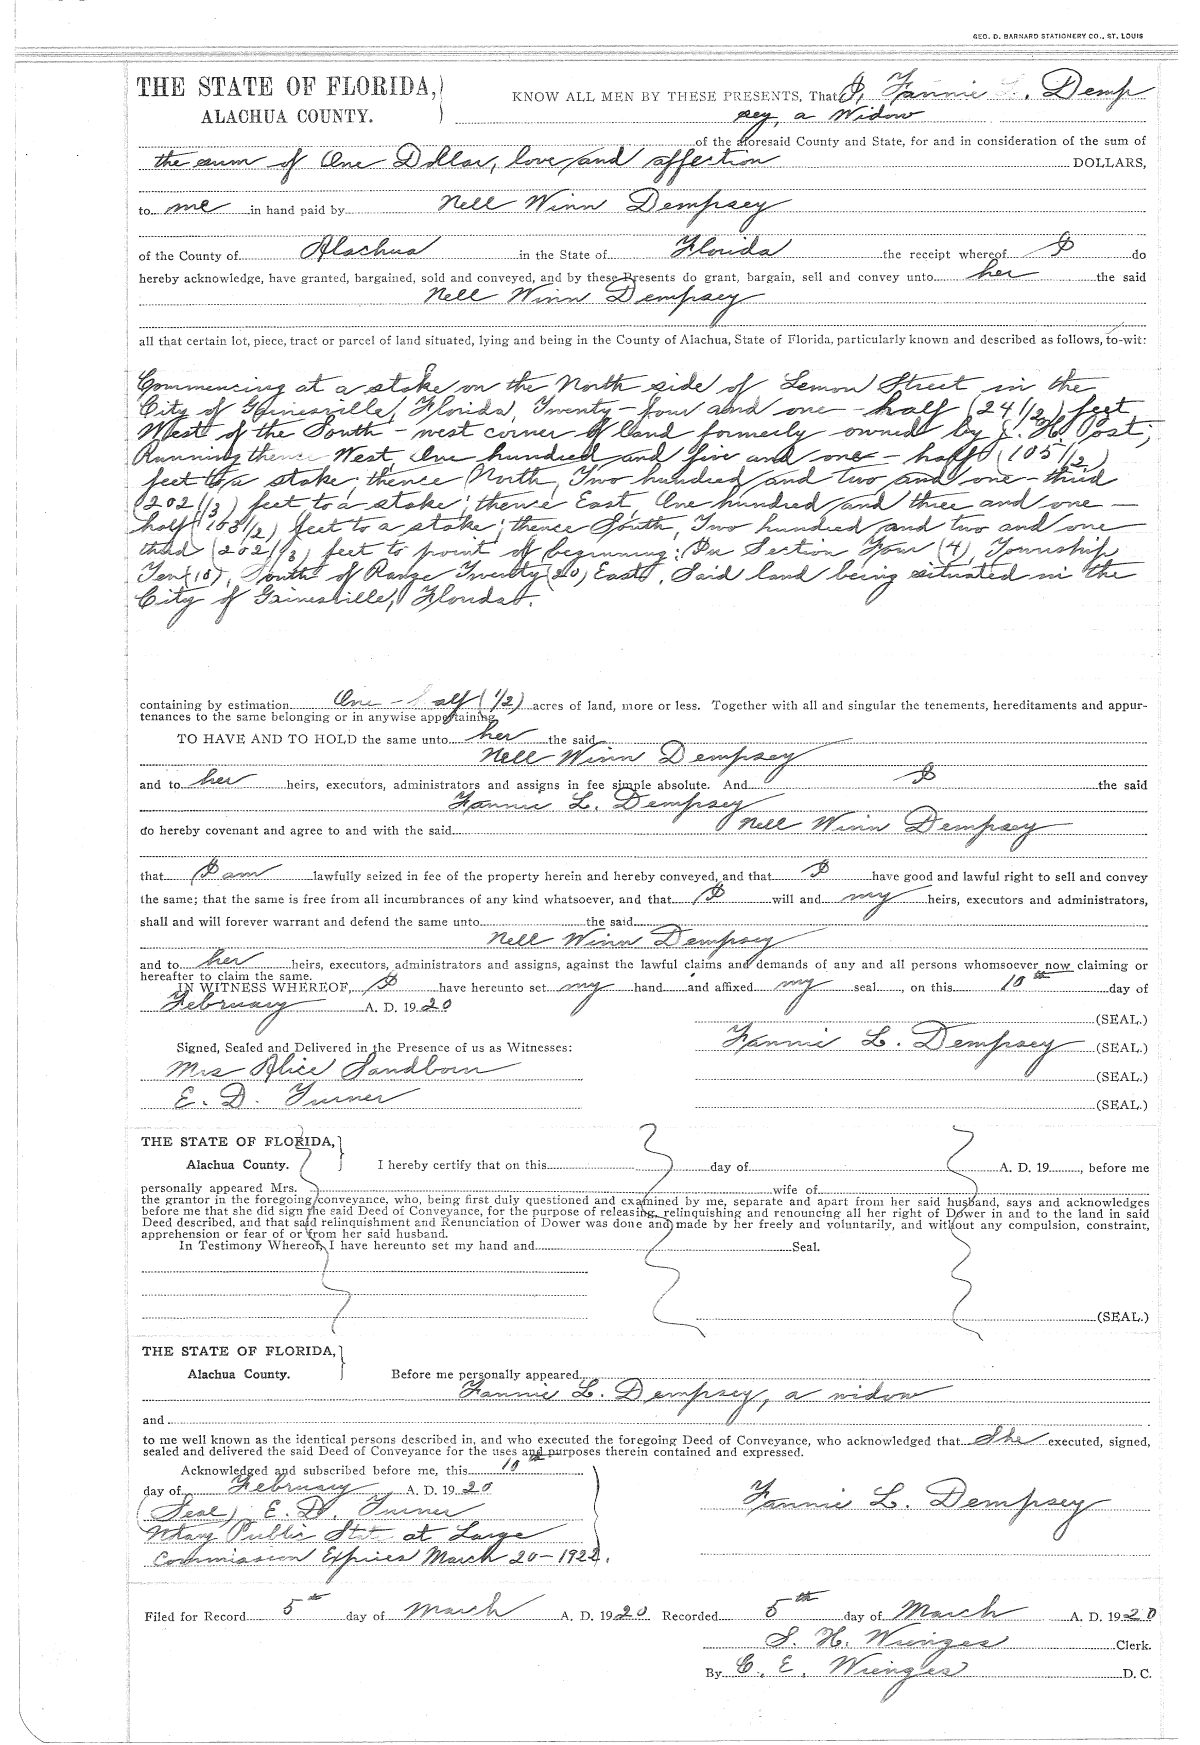 GEO. D. BARNARD STATIONERY CO., ST. LOUIS
THE STATE OF FLORIDA, KNOW ALL MEN BY THESE PRESENTS, That I, Fannie L. Demp
ALACHUA COUNTY. sey, a Widow
of the aforesaid County and State, for and in consideration of the sum of
the sum of One Dollar, love and affection DOLLARS,
to me in hand paid by Nell Winn Dempsey
of the County of Alachua in the State of Florida the receipt whereof I do
hereby acknowledge, have granted, bargained, sold and conveyed, and by these Presents do grant, bargain, sell and convey unto her the said
Nell Winn Dempsey
all that certain lot, piece, tract or parcel of land situated, lying and being in the County of Alachua, State of Florida, particularly known and described as follows, to-wit:
Commencing at a stake on the North side of Lemon Street in the
City of Gainesville, Florida, Twenty-four and one-half (24 1/2) feet
West of the South-west corner of land formerly owned by J. H. Post;
Running thence West, One hundred and five and one-half (105 1/2)
feet to a stake; thence North, Two hundred and two and one-third
(202 1/3) feet to a stake; thence East, One hundred and three and one-
half (103 1/2) feet to a stake; thence South, Two hundred and two and one
third (202 1/3) feet to point of beginning: In Section Four (4), Township
Ten (10), South of Range Twenty (20) East, Said land being situated in the
City of Gainesville, Florida.
containing by estimation One-half (1/2) acres of land, more or less. Together with all and singular the tenements, hereditaments and appur-
tenances to the same belonging or in anywise appertaining.
TO HAVE AND TO HOLD the same unto her the said
Nell Winn Dempsey
and to her heirs, executors, administrators and assigns in fee simple absolute. And I the said
Fannie L. Dempsey
do hereby covenant and agree to and with the said Nell Winn Dempsey
that I am lawfully seized in fee of the property herein and hereby conveyed, and that I have good and lawful right to sell and convey
the same; that the same is free from all incumbrances of any kind whatsoever, and that I will and my heirs, executors and administrators,
shall and will forever warrant and defend the same unto the said
Nell Winn Dempsey
and to her heirs, executors, administrators and assigns, against the lawful claims and demands of any and all persons whomsoever now claiming or
hereafter to claim the same.
IN WITNESS WHEREOF, I have hereunto set my hand and affixed my seal, on this 10th day of
February A. D. 1920
(SEAL.)
Signed, Sealed and Delivered in the Presence of us as Witnesses: Fannie L. Dempsey (SEAL.)
Mrs Alice Sandborn (SEAL.)
E. D. Turner (SEAL.)
THE STATE OF FLORIDA,
Alachua County. I hereby certify that on this day of A. D. 19, before me
personally appeared Mrs. wife of
the grantor in the foregoing conveyance, who, being first duly questioned and examined by me, separate and apart from her said husband, says and acknowledges
before me that she did sign the said Deed of Conveyance, for the purpose of releasing, relinquishing and renouncing all her right of Dower in and to the land in said
Deed described, and that said relinquishment and Renunciation of Dower was done and made by her freely and voluntarily, and without any compulsion, constraint,
apprehension or fear of or from her said husband.
In Testimony Whereof, I have hereunto set my hand and Seal.
(SEAL.)
THE STATE OF FLORIDA,
Alachua County. Before me personally appeared
Fannie L. Dempsey, a widow
and
to me well known as the identical persons described in, and who executed the foregoing Deed of Conveyance, who acknowledged that She executed, signed,
sealed and delivered the said Deed of Conveyance for the uses and purposes therein contained and expressed.
Acknowledged and subscribed before me, this 10th
day of February A. D. 1920
(Seal) E. D. Turner Fannie L. Dempsey
Notary Public State at Large
Commission Expires March 20-1922.
Filed for Record 5th day of March A. D. 1920 Recorded 5th day of March A. D. 1920
S. H. Wienges Clerk.
By C. E. Wienges D. C.